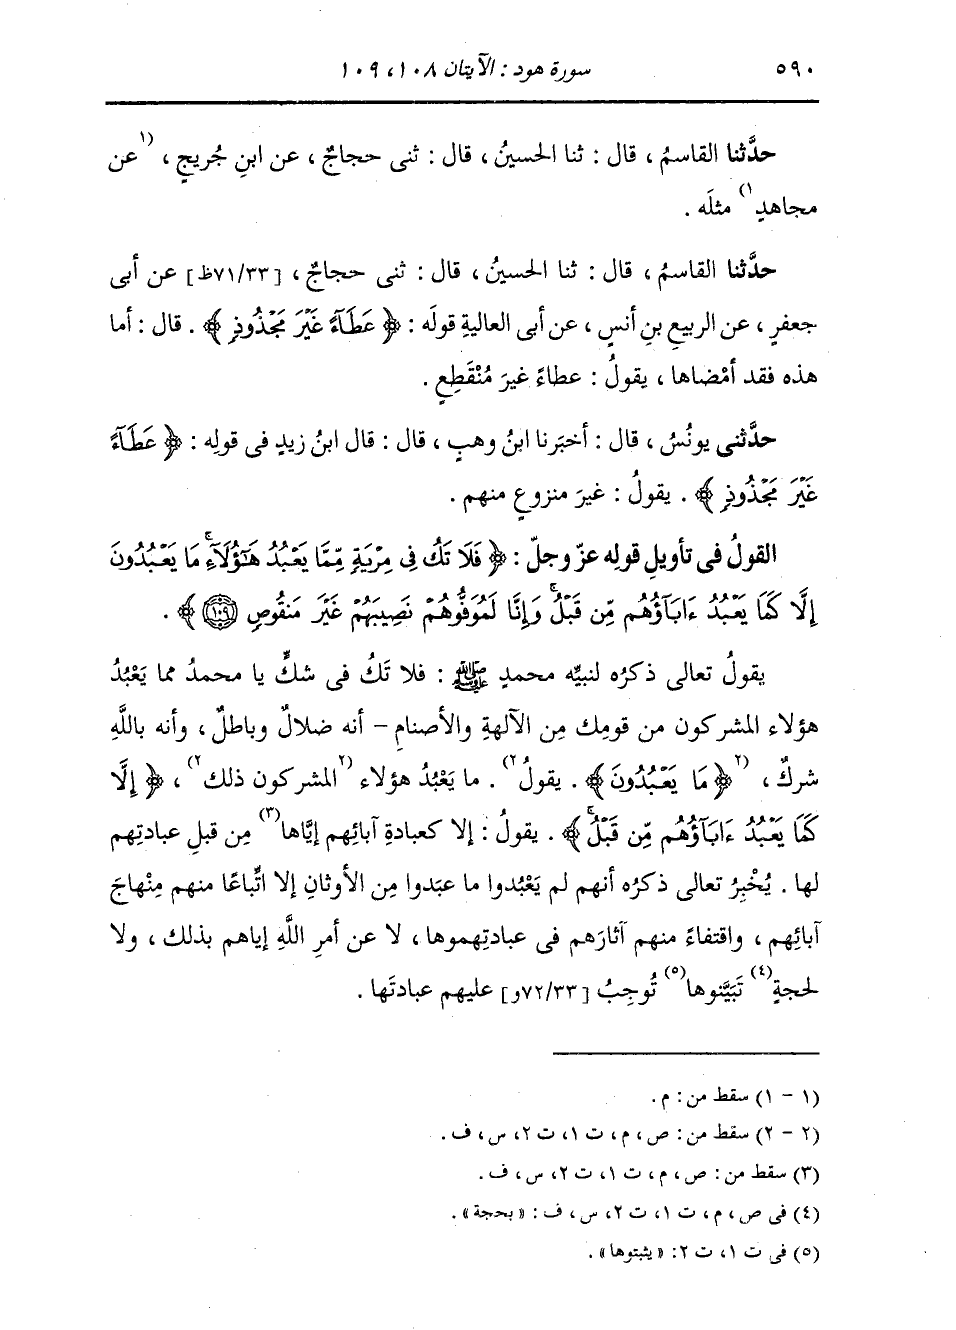 ٥٩٠ سورة هود : الآيتان ١٠٨، ١٠٩
حدَّثنا القاسمُ ، قال : ثنا الحسينُ ، قال : ثنى حجاجٌ ، عن ابنِ جُريجٍ ، (١عن
مجاهدٍ١) مثلَه .
حدَّثنا القاسمُ ، قال : ثنا الحسينُ ، قال : ثنى حجاجٌ ، [٧١/٣٣ظ] عن أبى
جعفرٍ ، عن الربيعِ بنِ أنسٍ ، عن أبى العاليةِ قولَه : ﴿ عَطَآءً غَيْرَ مَجْذُوذٍ ﴾ . قال : أما
هذه فقد أمْضاها ، يقولُ : عطاءً غيرَ مُنْقَطِعٍ .
حدَّثنى يونُسُ ، قال : أخبَرنا ابنُ وهبٍ ، قال : قال ابنُ زيدٍ فى قولِه : ﴿ عَطَآءً
غَيْرَ مَجْذُوذٍ ﴾ . يقولُ : غيرَ منزوعٍ منهم .
القولُ فى تأويلِ قولِه عزّ وجلّ : ﴿ فَلَا تَكُ فِى مِرْيَةٍ مِّمَّا يَعْبُدُ هَٰٓؤُلَآءِۚ مَا يَعْبُدُونَ
إِلَّا كَمَا يَعْبُدُ ءَابَآؤُهُم مِّن قَبْلُۚ وَإِنَّا لَمُوَفُّوهُمْ نَصِيبَهُمْ غَيْرَ مَنقُوصٍ ١٠٩ ﴾ .
يقولُ تعالى ذكرُه لنبيِّه محمدٍ ﷺ : فلا تَكُ فى شكٍّ يا محمدُ مما يَعْبُدُ
هؤلاء المشركون من قومِك مِن الآلهةِ والأصنامِ – أنه ضلالٌ وباطلٌ ، وأنه باللَّهِ
شركٌ ، (٢﴿ مَا يَعْبُدُونَ ﴾ . يقولُ٢) . ما يَعْبُدُ هؤلاء (٢المشركون ذلك٢) ، ﴿ إِلَّا
كَمَا يَعْبُدُ ءَابَآؤُهُم مِّن قَبْلُۚ ﴾ . يقولُ : إلا كعبادةِ آبائِهم إيَّاها(٣) مِن قبلِ عبادتِهم
لها . يُخْبِرُ تعالى ذكرُه أنهم لم يَعْبُدوا ما عبَدوا مِن الأوثانِ إلا اتِّباعًا منهم مِنْهاجَ
آبائِهم ، واقتفاءً منهم آثارَهم فى عبادتِهموها ، لا عن أمرِ اللَّهِ إياهم بذلك ، ولا
لحجةٍ(٤) تَبَيَّنوها(٥) تُوجِبُ [٧٢/٣٣و] عليهم عبادتَها .
(١ – ١) سقط من : م .
(٢ – ٢) سقط من : ص ، م ، ت ١ ، ت ٢ ، س ، ف .
(٣) سقط من : ص ، م ، ت ١ ، ت ٢ ، س ، ف .
(٤) فى ص ، م ، ت ١ ، ت ٢ ، س ، ف : « بحجة » .
(٥) فى ت ١ ، ت ٢ : « يثبتوها » .